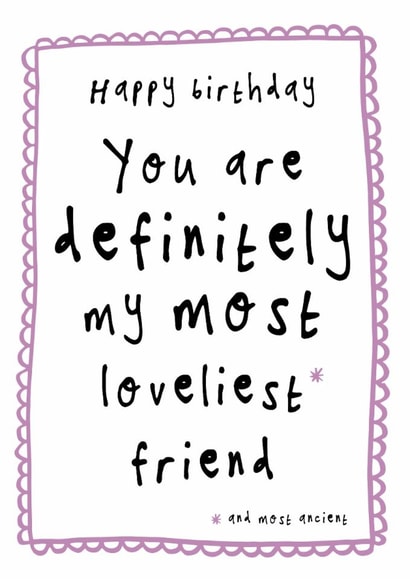 Happy birthday
You are
definitely
my most
loveliest*
friend
* and most ancient